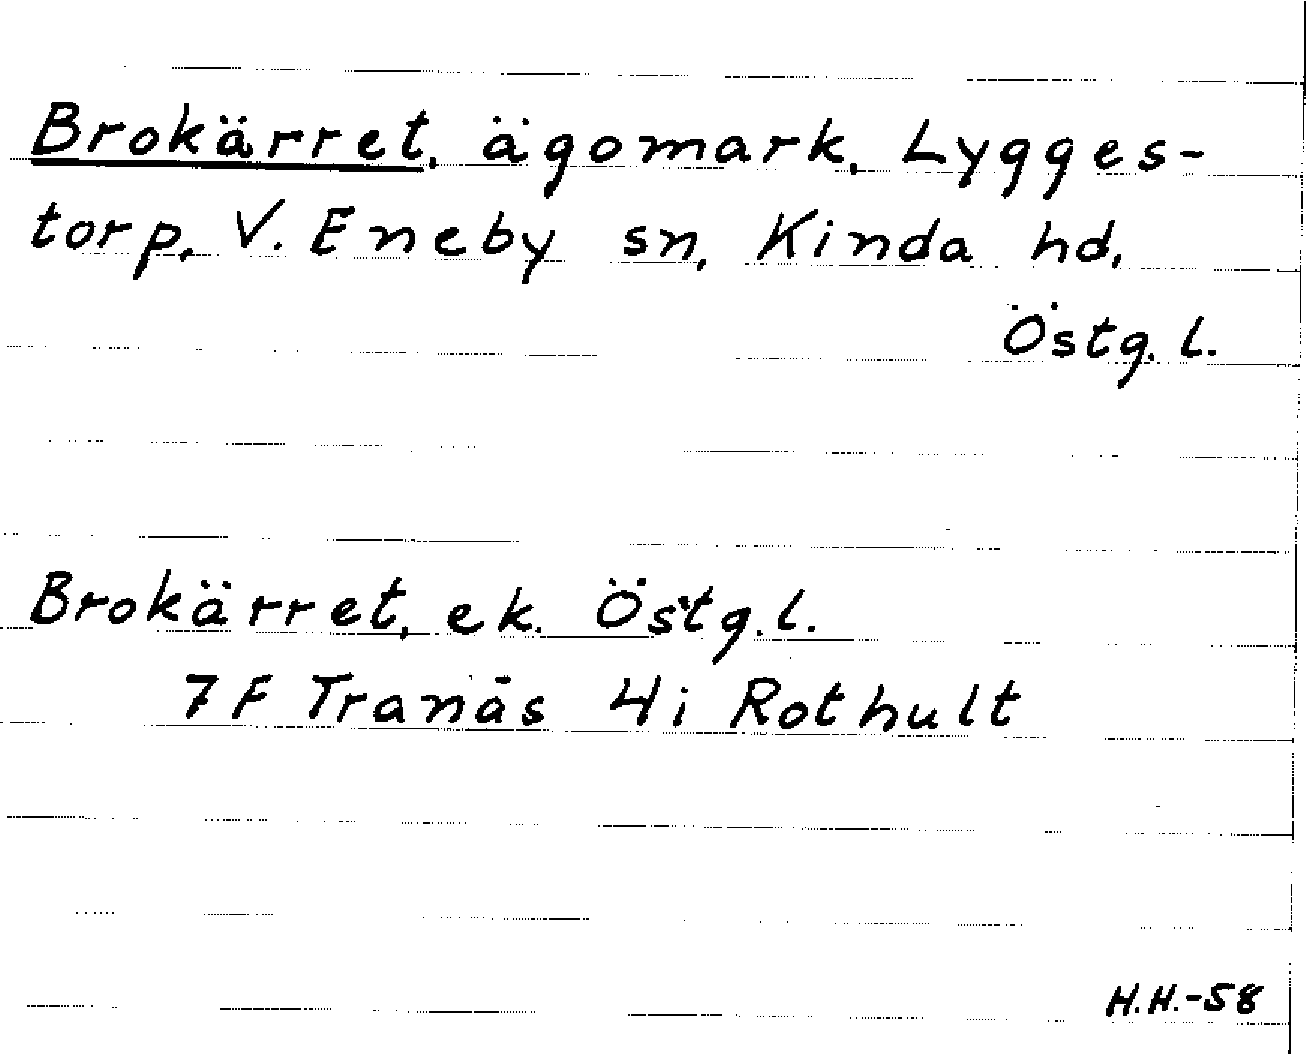 Brokärret, ägomark, Lygges-
torp, V. Eneby sn, Kinda hd,
Östg. l.
Brokärret, ek. Östg. l.
7F Tranås 4i Rothult
H.H.-58